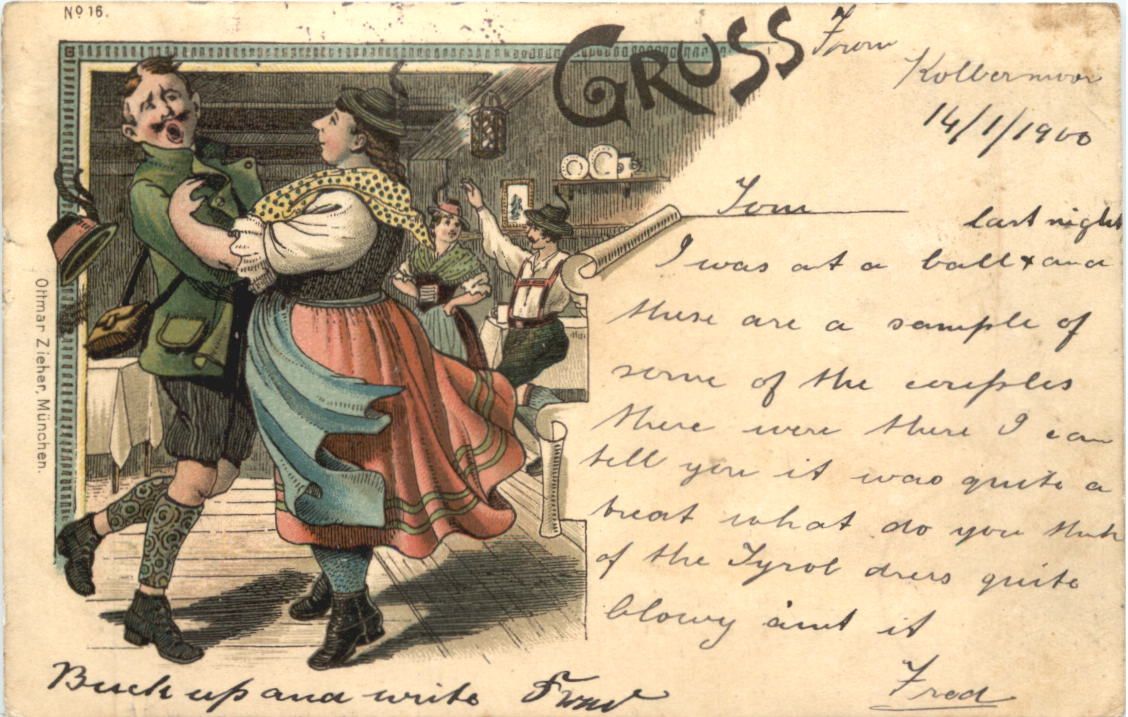 No 16.
GRUSS From
Kolbermoor
14/1/1900
Tom
last night
I was at a ball & and
these are a sample of
some of the couples
there were there I can
tell you it was quite a
treat what do you think
of the Tyrol dress quite
blowy aint it
Fred
Buck up and write
Ottmar Zieher, München.